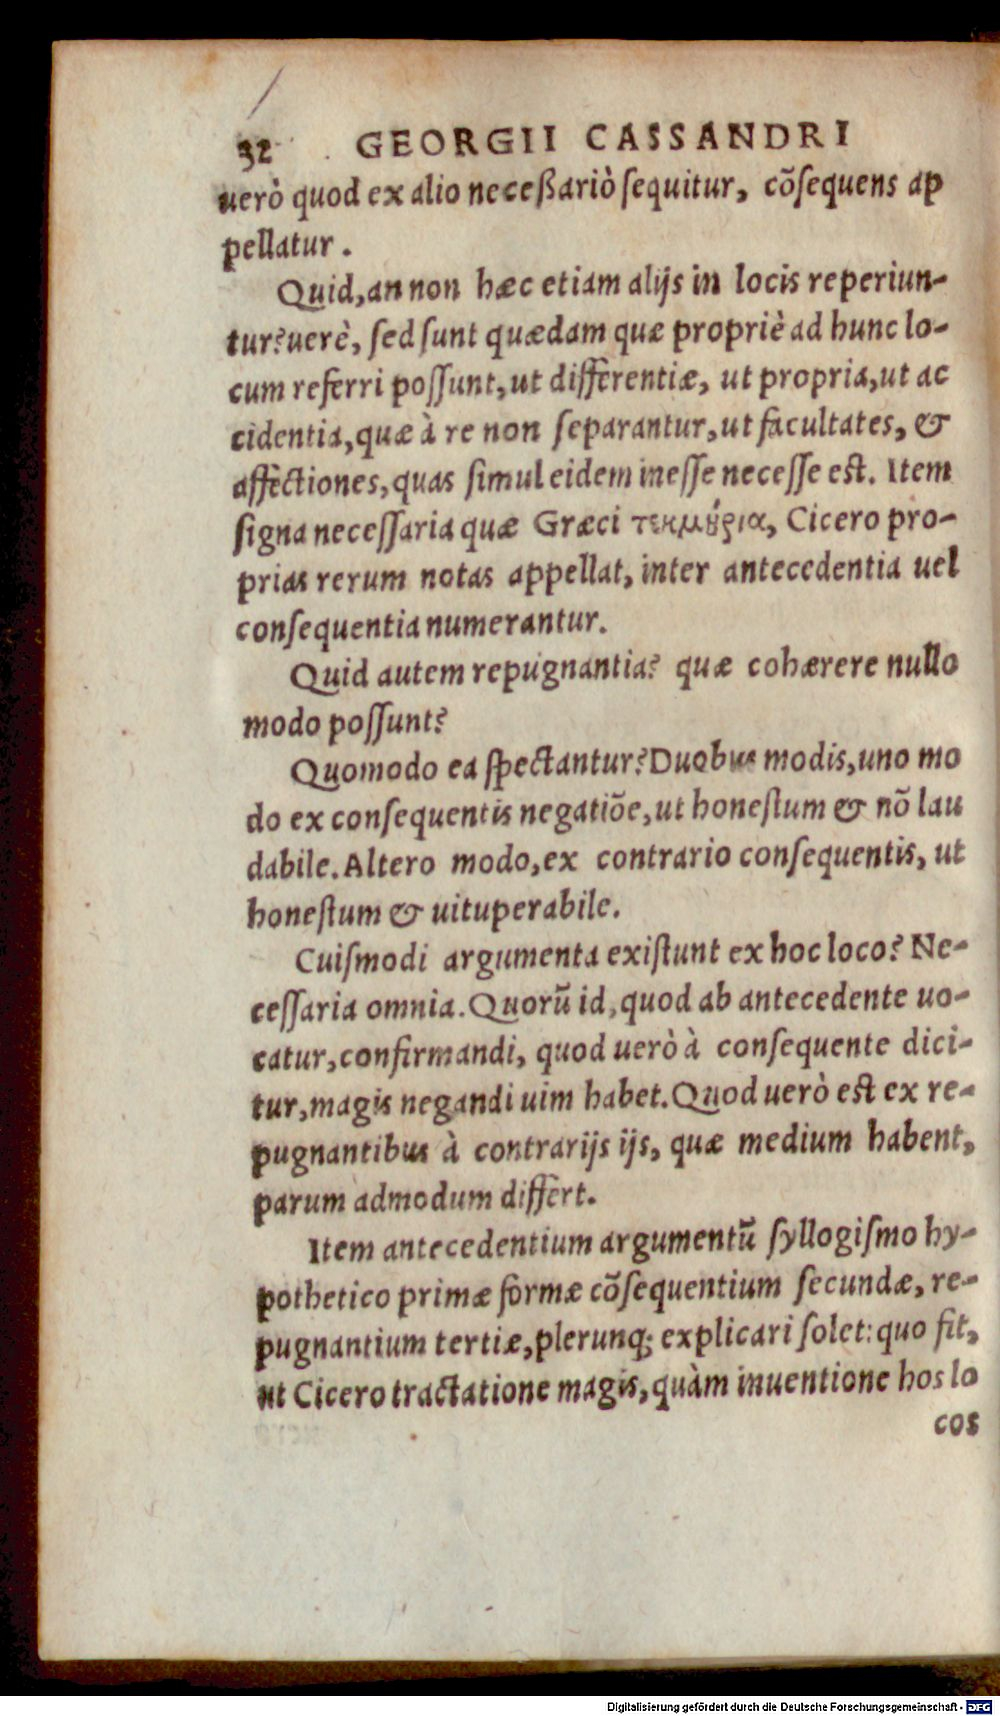 32 GEORGII CASSANDRI
uerò quod ex alio neceßariò ſequitur, cõſequens ap
pellatur.
Quid, an non hæc etiam alijs in locis reperiun-
tur? uerè, ſed ſunt quædam quæ propriè ad hunc lo-
cum referri poſſunt, ut differentiæ, ut propria, ut ac
cidentia, quæ à re non ſeparantur, ut facultates, &
affectiones, quas ſimul eidem ineſſe neceſſe eſt. Item
ſigna neceſſaria quæ Græci τεκμήρια, Cicero pro-
prias rerum notas appellat, inter antecedentia uel
conſequentia numerantur.
Quid autem repugnantia? quæ cohærere nullo
modo poſſunt?
Quomodo ea ſpectantur? Duobus modis, uno mo
do ex conſequentis negatiõe, ut honeſtum & nõ lau
dabile. Altero modo, ex contrario conſequentis, ut
honeſtum & uituperabile.
Cuiſmodi argumenta exiſtunt ex hoc loco? Ne-
ceſſaria omnia. Quorũ id, quod ab antecedente uo-
catur, confirmandi, quod uerò à conſequente dici-
tur, magis negandi uim habet. Quod uerò eſt ex re-
pugnantibus à contrarijs ijs, quæ medium habent,
parum admodum differt.
Item antecedentium argumentũ ſyllogiſmo hy-
pothetico primæ formæ cõſequentium ſecundæ, re-
pugnantium tertiæ, plerunq; explicari ſolet: quo fit,
ut Cicero tractatione magis, quàm inuentione hos lo
cos
Digitalisierung gefördert durch die Deutsche Forschungsgemeinschaft - DFG